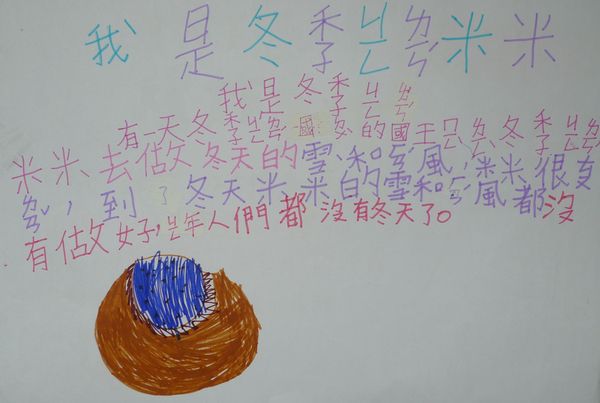 我是冬季ㄐㄥ米米
我是冬季ㄐㄥ
有一天冬季ㄐㄥ國的國王冬季ㄐㄥ
米米、去做冬天的雪、和風,米米很
,到了冬天米米的雪和風都沒
有做好,年人們都沒有冬天了。